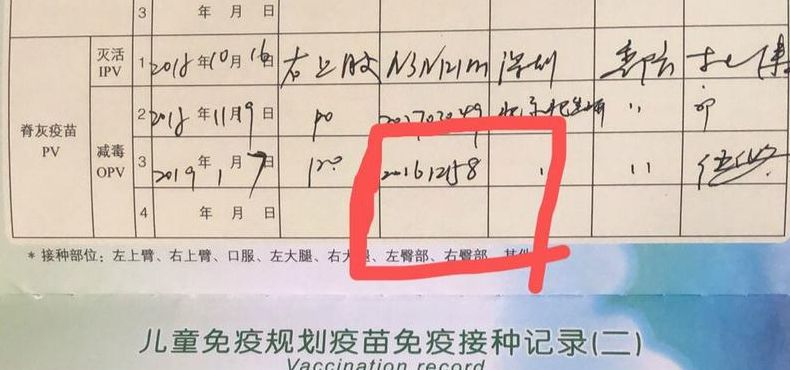 3 年 月 日
脊灰疫苗 PV
灭活 IPV 1 2018年10月16日 右上肢 N3N121M 深圳
减毒 OPV 2 2018年11月9日 po 201702049 〃
3 2019年1月7日 po 201612158 〃
4 年 月 日
* 接种部位：左上臂、右上臂、口服、左大腿、右大腿、左臀部、右臀部、其他
儿童免疫规划疫苗免疫接种记录(二)
Vaccination record